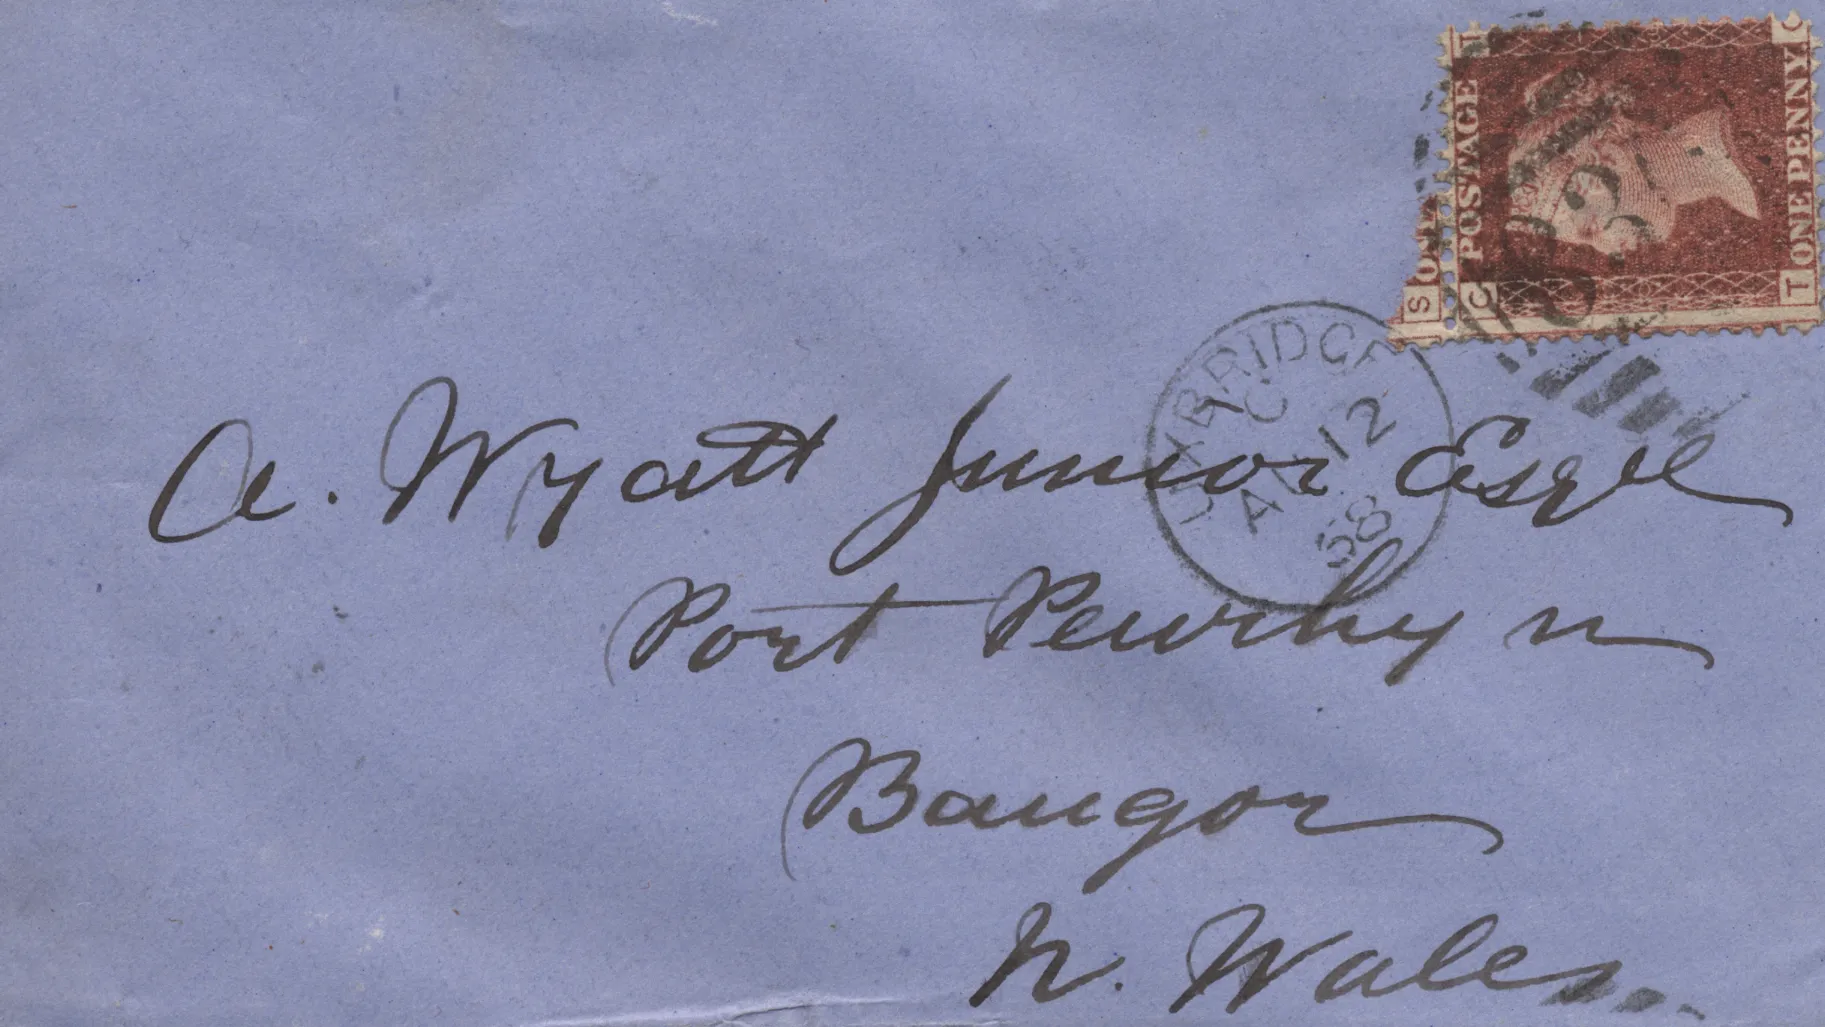 POSTAGE
ONE PENNY
C
T
T
C
S
ONE
UXBRIDGE
C
AU 12
68
A. Wyatt Junior Esqre
Port Penrhyn
Bangor
N. Wales